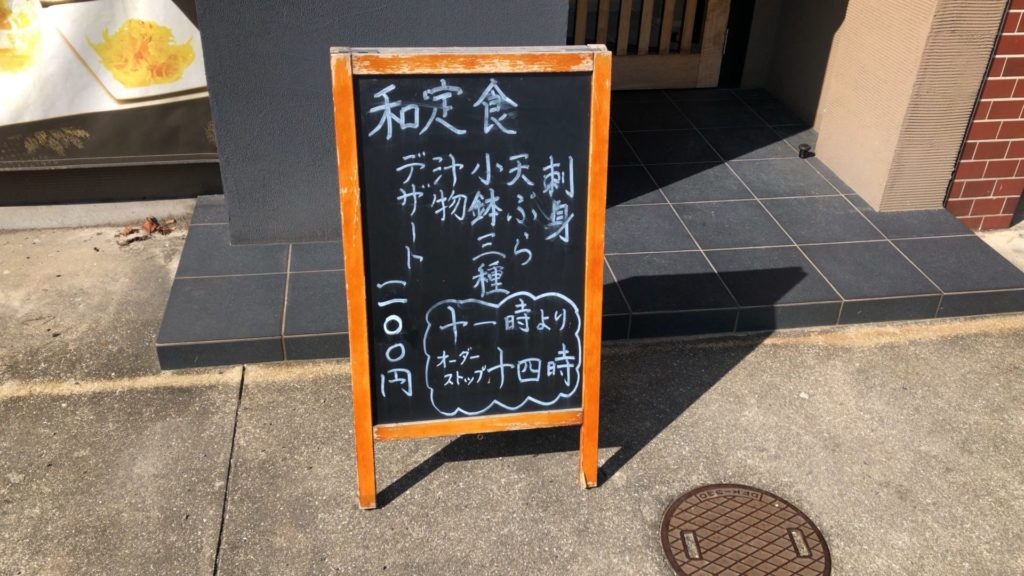 和定食
刺身
天ぷら
小鉢三種
汁物
デザート
一一〇〇円
十一時より
オーダー
ストップ
十四時